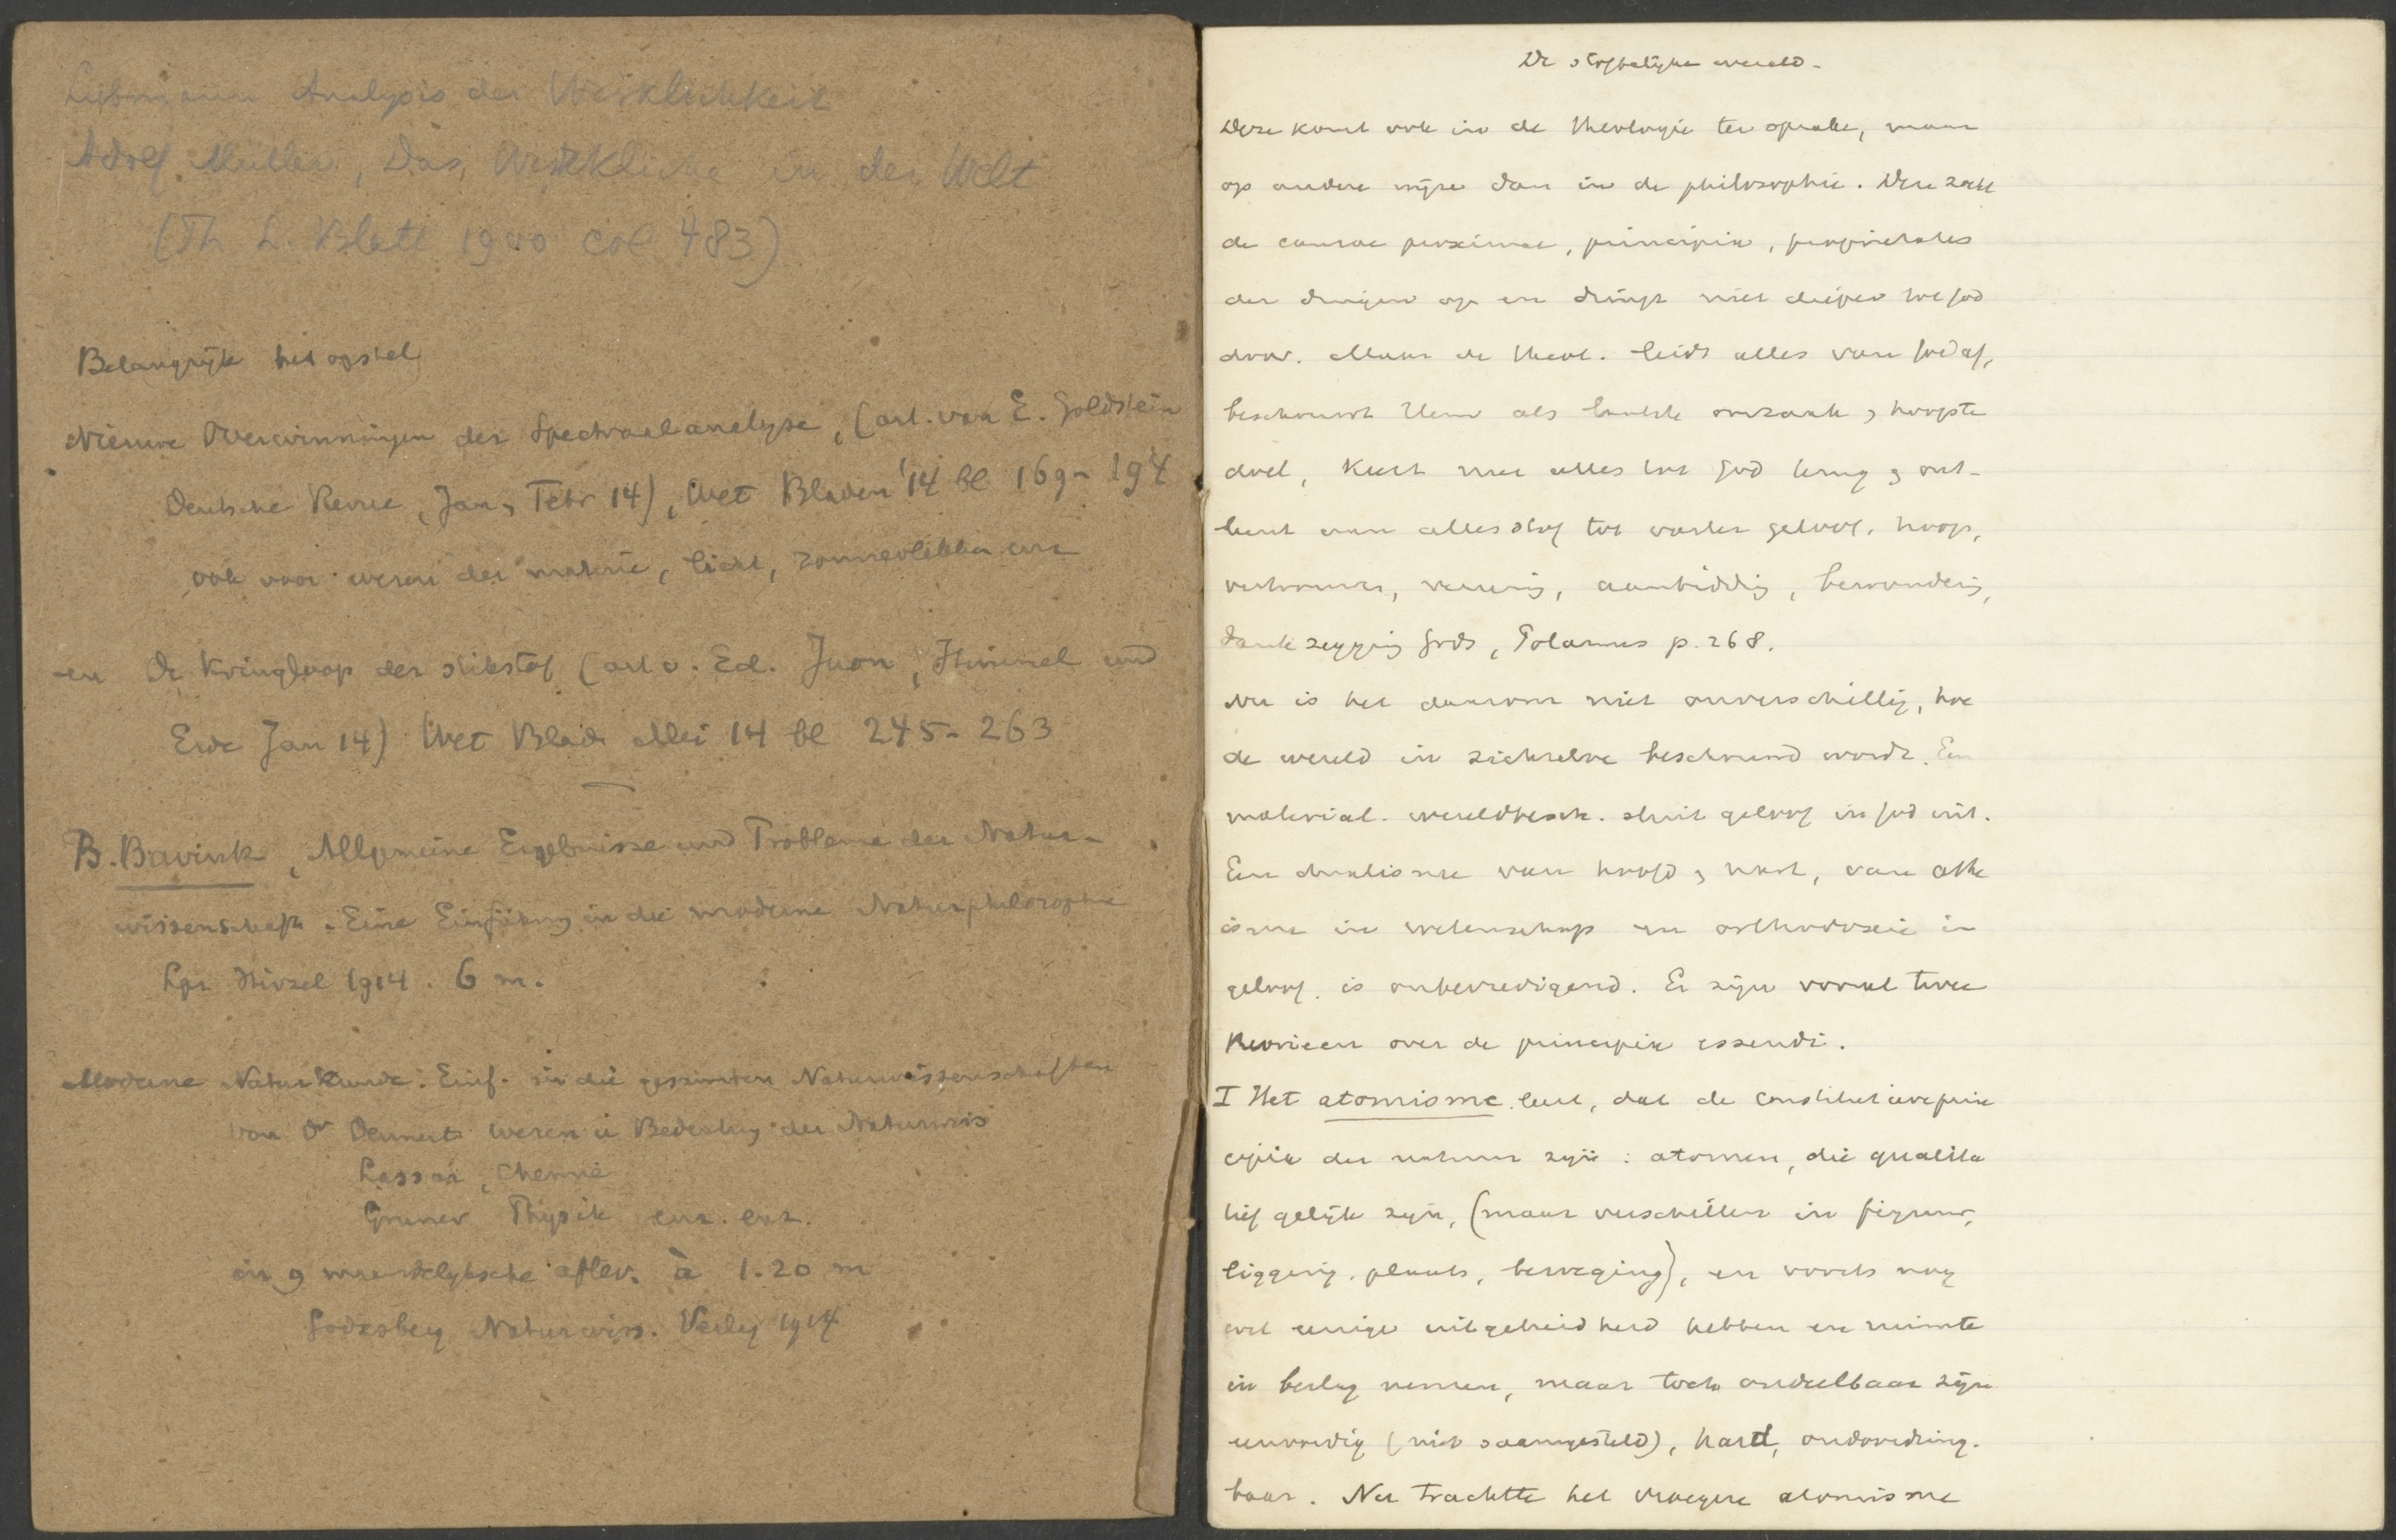 Liebmann Analysis der Wirklichkeit
Adolf Müller, Das Wirkliche in der Welt
(Th. L. Blatt 1900 col 483)
Belangrijk het opstel
Nieuwe Overwinningen der Spectraalanalyse, (art. van E. Goldstein
Deutsche Revue, Jan, Febr 14), Wet Bladen '14 bl 169-194
ook voor wezen der materie, licht, zonnevlekken enz
en De Kringloop der stikstof (art v. Ed. Juon, Himmel und
Erde Jan 14) Wet Blade Mei 14 bl 245-263
B. Bavink, Allgemeine Ergebnisse und Probleme der Natur-
wissenschaft. Eine Einführung in die moderne Naturphilosophie
Lpz Hirzel 1914. 6 m.
Moderne Naturkunde. Einf. in die gesamten Naturwissenschaften
von Dr Dennert Wesen u Bedeutung der Naturwis
Lassar, Chemie
Gruner Physik enz. enz.
in 9 maandelijksche aflev. à 1.20 m
Godesberg Naturwiss. Verlag 1914
De stoffelijke wereld.
Deze komt ook in de theologie ter sprake, maar
op andere wijze dan in de philosophie. Deze zoekt
de causae proximae, principia, proprietates
der dingen op en dringt niet dieper tot God
door. Maar de theol. leidt alles van God af,
beschouwt Hem als laatste oorzaak, hoogste
doel, keert met alles tot God terug, ont-
leent aan alles stof tot vaster geloof, hoop,
vertrouwen, aanbidding, bewondering,
dankzegging Gods, Polanus p. 268.
Nu is het daarom niet onverschillig, hoe
de wereld in zichzelve beschouwd wordt. Een
material. wereldbesch. sluit geloof in God uit.
Een dualisme van hoofd, hart, van athe
isme in wetenschap en orthodoxie in
geloof, is onbevredigend. Er zijn vooral twee
theorieen over de principia essendi.
I Het atomisme leert, dat de constitutieve prin
cipia der natuur zijn: atomen, die qualita
tief gelijk zijn, (maar verschillen in figuur,
ligging, plaats, beweging), en voorts nog
wel eenige uitgebreidheid hebben en ruimte
in beslag nemen, maar toch ondeelbaar zijn
eenvoudig (niet saamgesteld), hard, ondoordring-
baar. Nu trachtte het vroegere atomisme